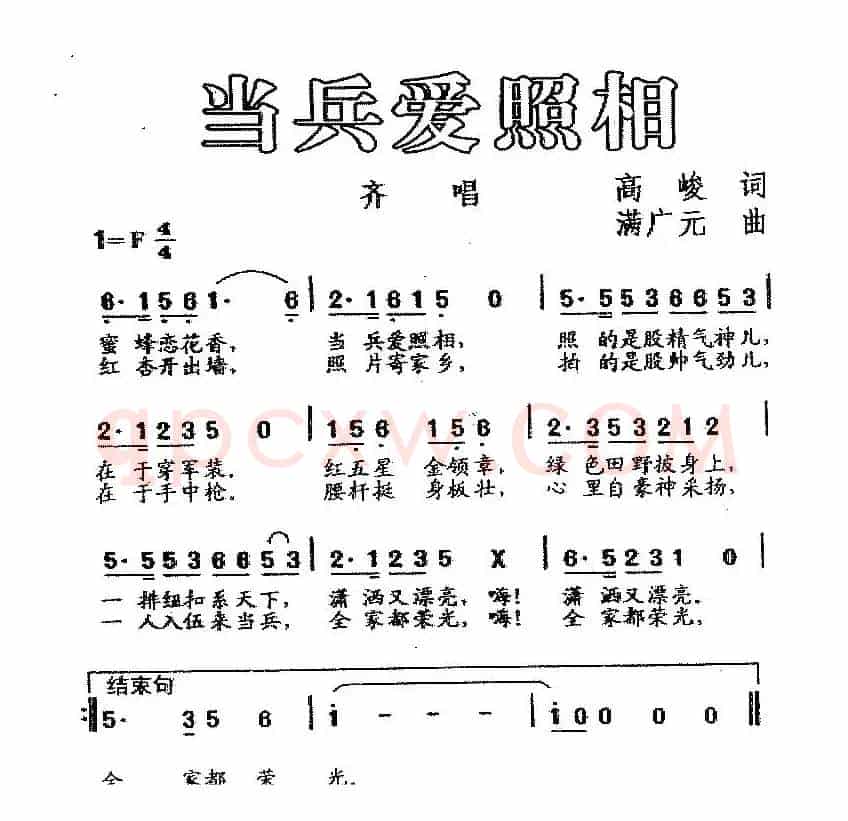 当兵爱照相
齐 唱 高 峻 词
满广元 曲
1=F 4/4
6· 1 5 6 1· 6 | 2· 1 6 1 5 0 | 5· 5 5 3 6 6 5 3 |
蜜 蜂恋花香, 当 兵爱照相, 照 的是股精气神儿,
红 杏开出墙, 照 片寄家乡, 拍 的是股帅气劲儿,
2· 1 2 3 5 0 | 1 5 6 1 5 6 | 2· 3 5 3 2 1 2 |
在 于穿军装。 红五星 金领章, 绿 色田野披身上,
在 于手中枪。 腰杆挺 身板壮, 心 里自豪神采扬,
5· 5 5 3 6 6 5 3 | 2· 1 2 3 5 X | 6· 5 2 3 1 0 |
一 排纽扣系天下, 潇 洒又漂亮, 嗨! 潇 洒又漂亮。
一 人入伍来当兵, 全 家都荣光, 嗨! 全 家都荣光,
结束句
:‖ 5· 3 5 6 | i - - - | i 0 0 0 0 0 ‖
全 家都 荣 光。
gpcxw.com